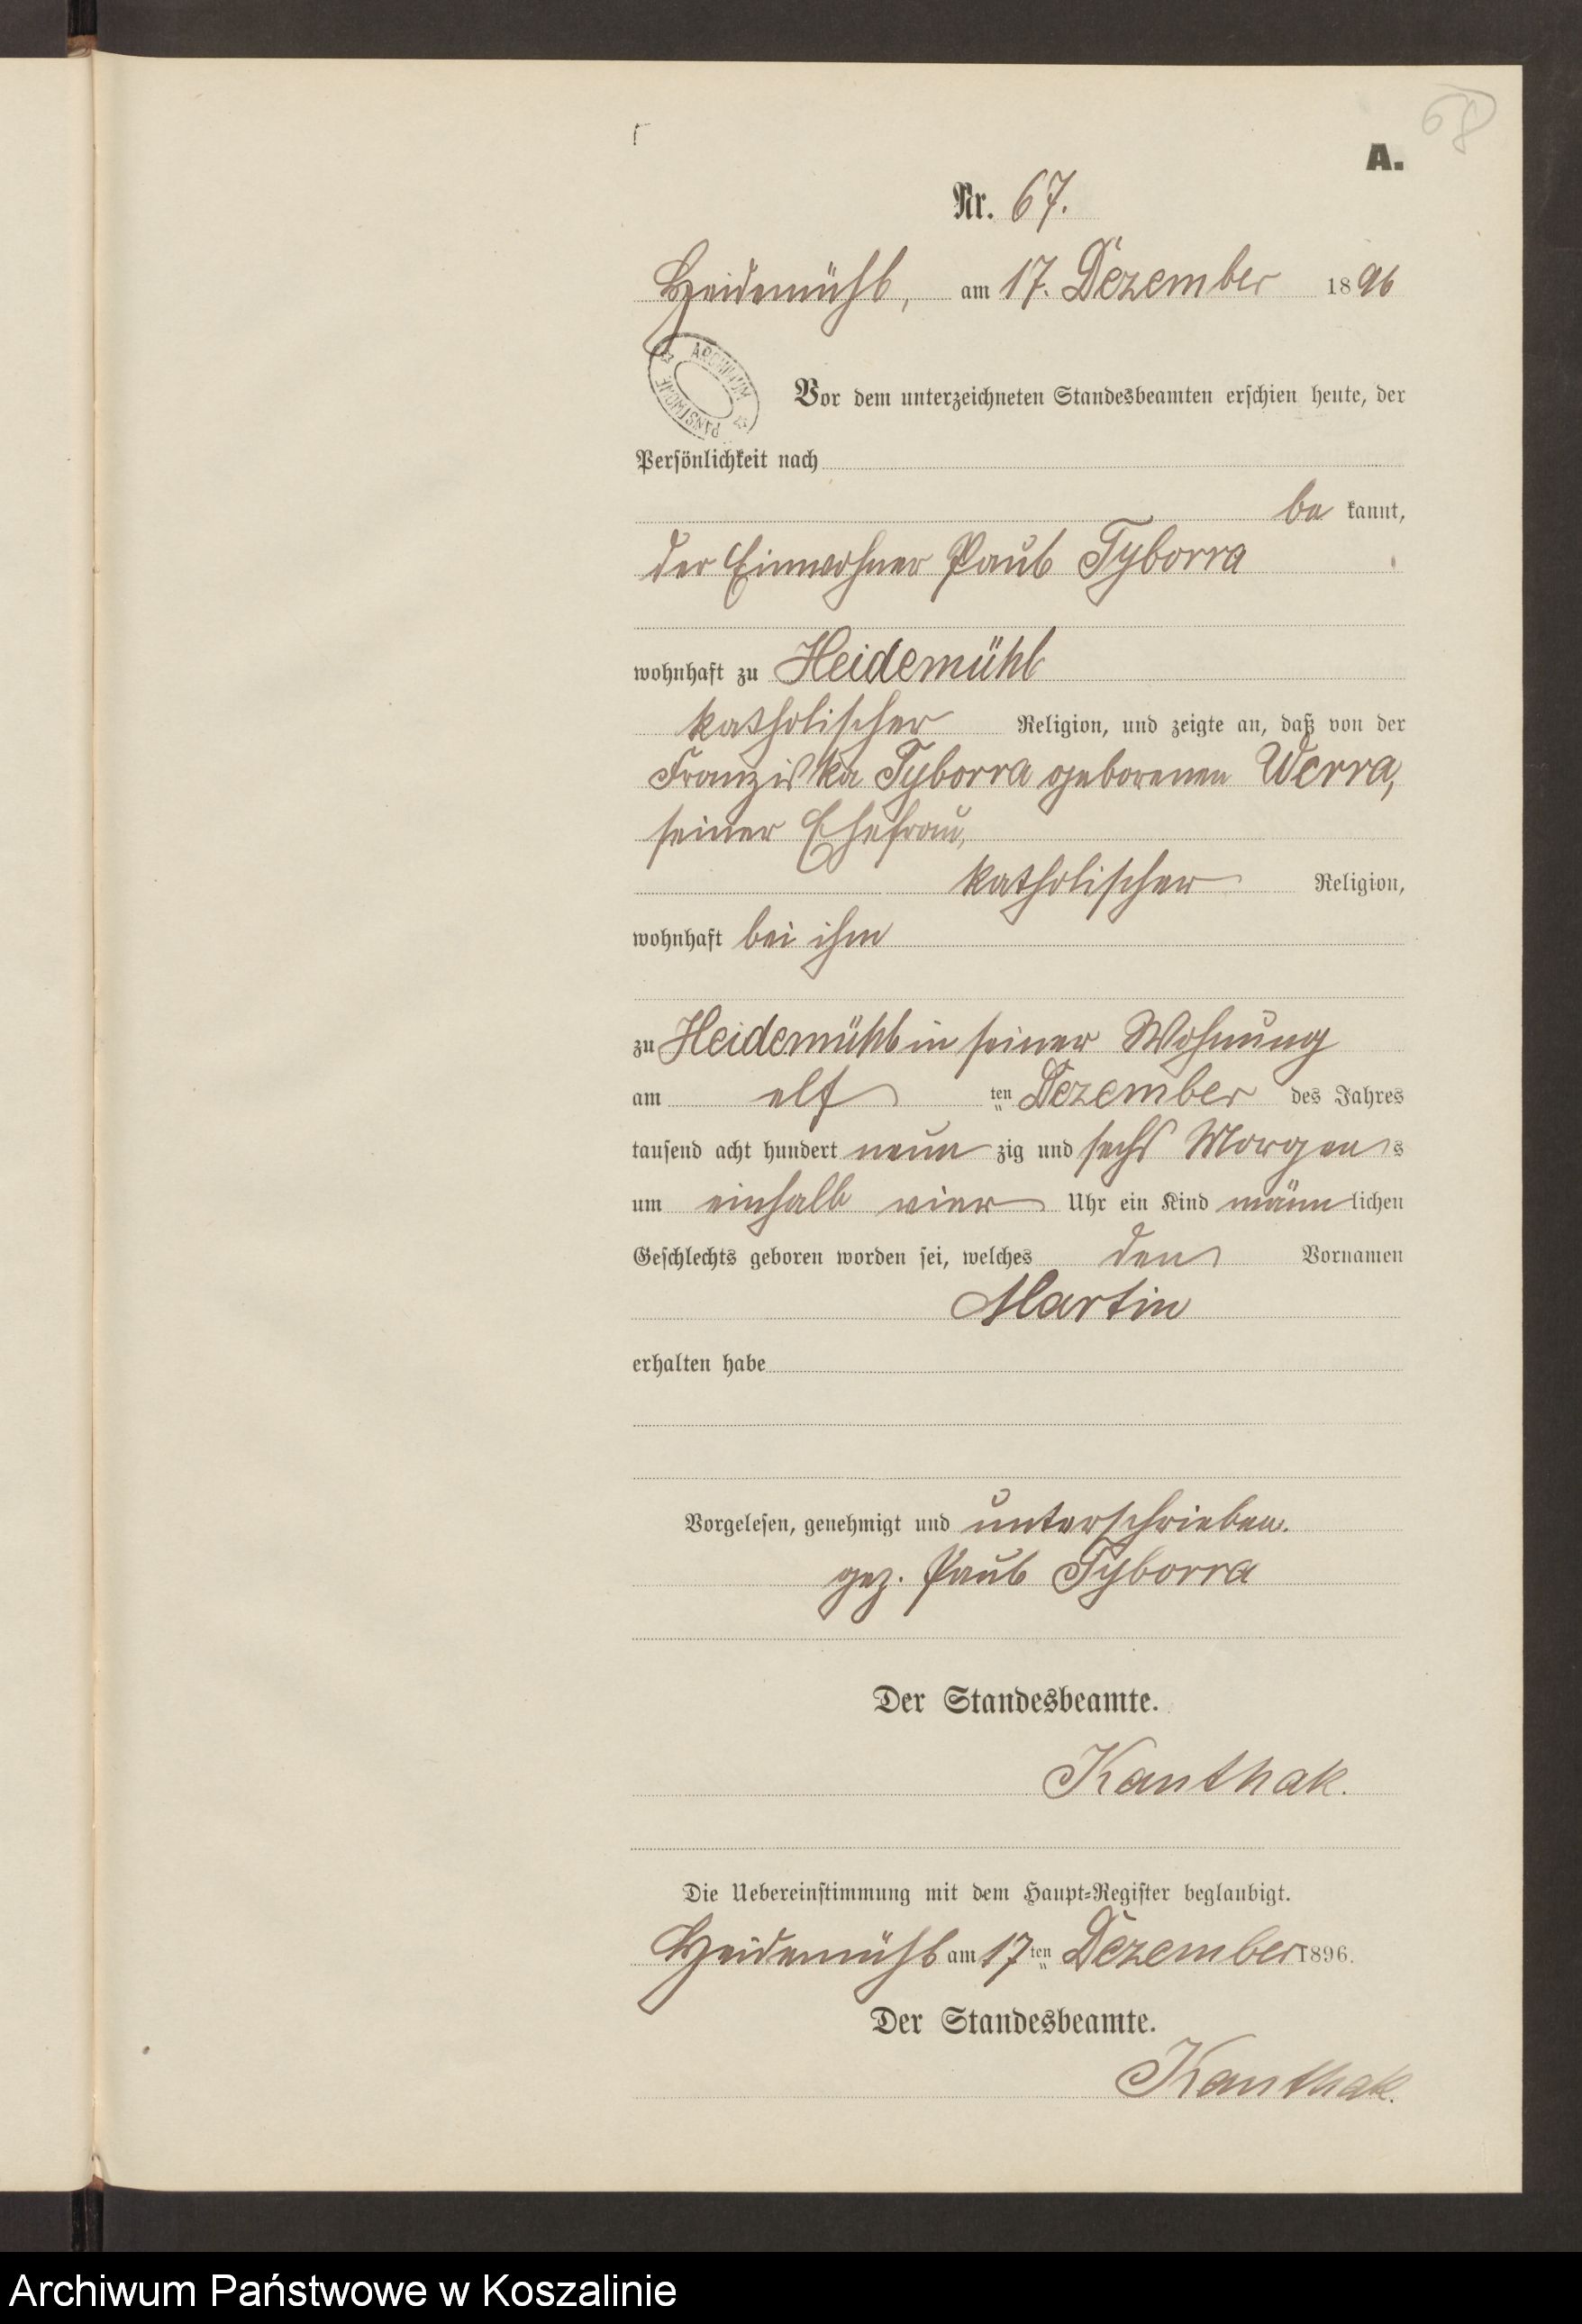 68
A.
Nr. 67.
Heidemühl, am 17. Dezember 1896
ARCHIWUM PAŃSTWOWE
Vor dem unterzeichneten Standesbeamten erschien heute, der
Persönlichkeit nach
be kannt,
der Einwohner Paul Tyborra
wohnhaft zu Heidemühl
katholischer Religion, und zeigte an, daß von der
Franziska Tyborra geborenen Werra,
seiner Ehefrau,
katholischer Religion,
wohnhaft bei ihm
zu Heidemühl in seiner Wohnung
am elf ten Dezember des Jahres
tausend acht hundert neun zig und sechs Morgens
um einhalb vier Uhr ein Kind männlichen
Geschlechts geboren worden sei, welches den Vornamen
Martin
erhalten habe
Vorgelesen, genehmigt und unterschrieben.
gez. Paul Tyborra
Der Standesbeamte.
Kanthak.
Die Uebereinstimmung mit dem Haupt-Register beglaubigt.
Heidemühl am 17ten Dezember 1896.
Der Standesbeamte.
Kanthak.
Archiwum Państwowe w Koszalinie